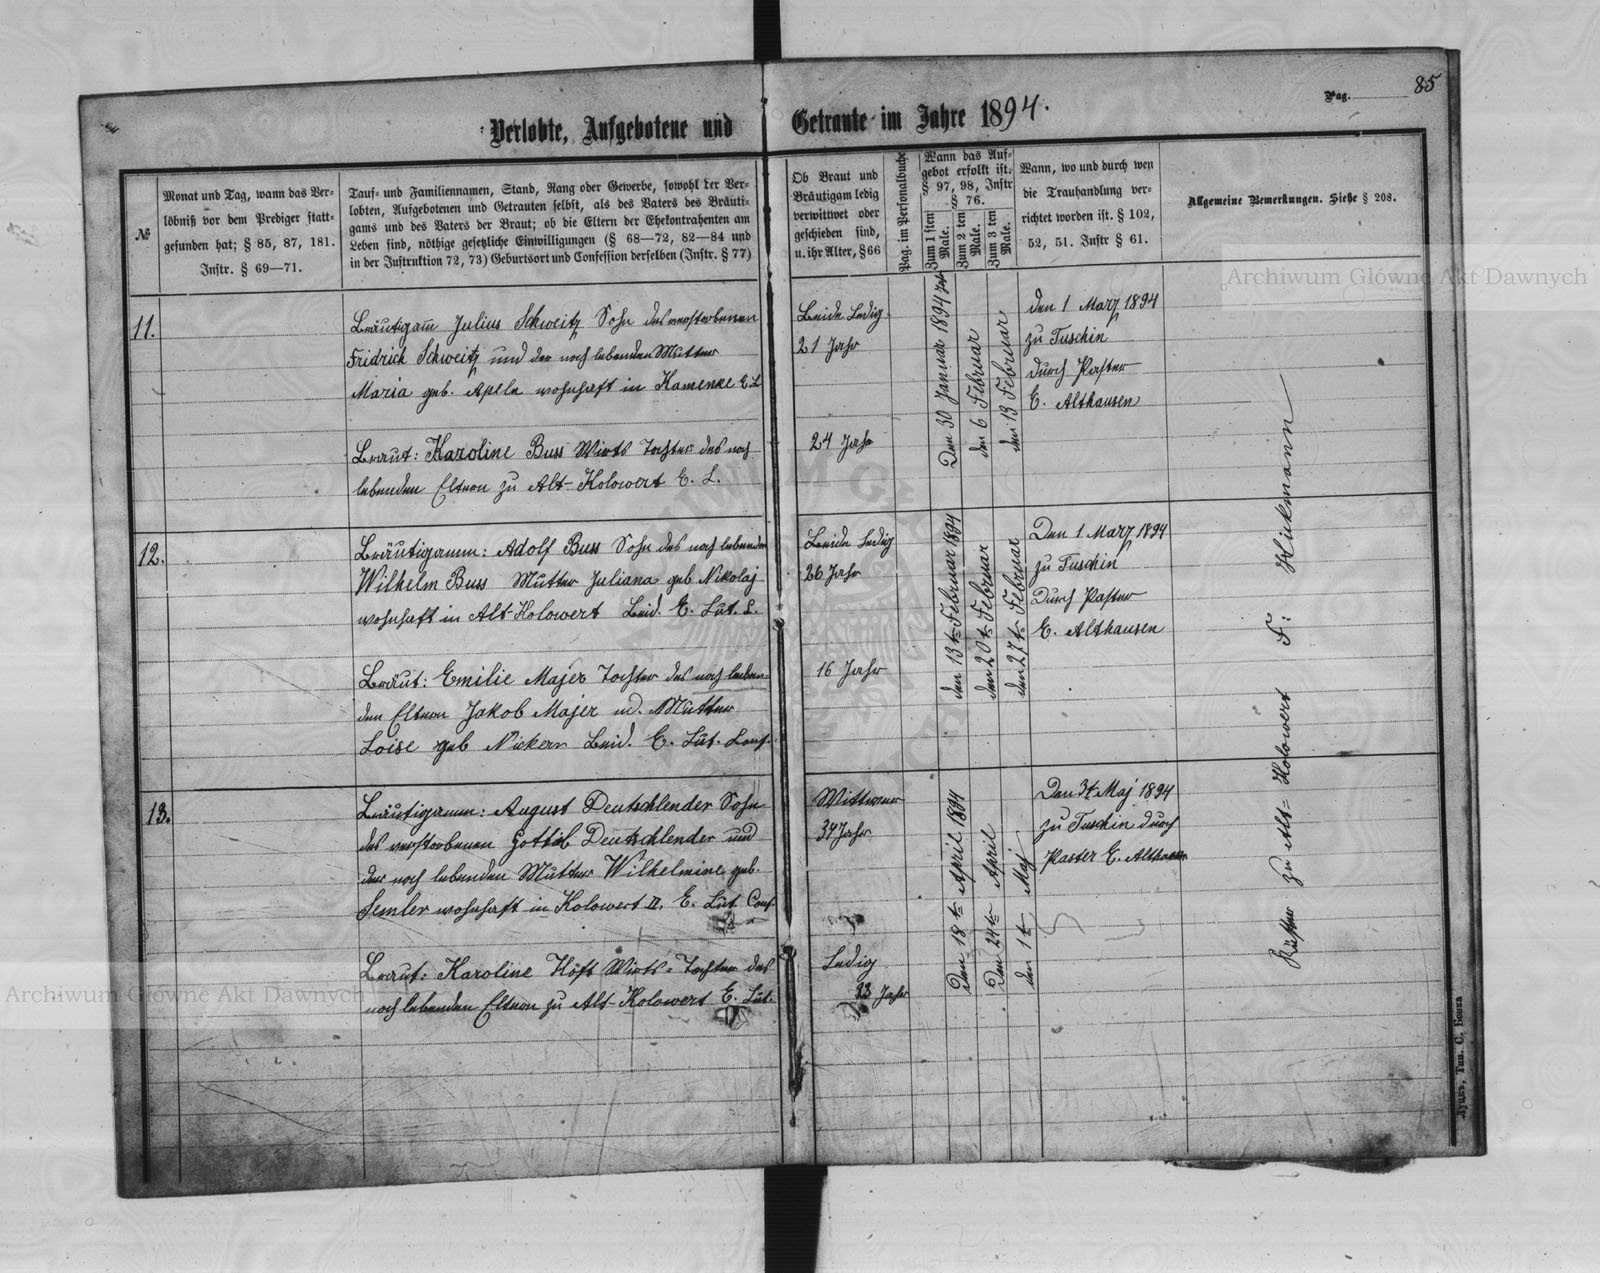 Pag. 85
Verlobte, Aufgebotene und Getraute im Jahre 1894.
№
Monat und Tag, wann das Ver-
löbniß vor dem Prediger statt-
gefunden hat; § 85, 87, 181.
Instr. § 69—71.
Tauf- und Familiennamen, Stand, Rang oder Gewerbe, sowohl der Ver-
lobten, Aufgebotenen und Getrauten selbst, als des Vaters des Bräuti-
gams und des Vaters der Braut; ob die Eltern der Ehekontrahenten am
Leben sind, nöthige gesetzliche Einwilligungen (§ 68—72, 82—84 und
in der Instruktion 72, 73) Geburtsort und Confession derselben (Instr. § 77)
Ob Braut und
Bräutigam ledig
verwittwet oder
geschieden sind,
u. ihr Alter, § 66
Pag. im Personalbuche
Wann das Auf-
gebot erfollt ist.
§ 97, 98, Instr
§ 76.
Zum 1 sten
Male.
Zum 2 ten
Male.
Zum 3 ten
Male.
Wann, wo und durch wen
die Trauhandlung ver-
richtet worden ist. § 102,
52, 51. Instr § 61.
Allgemeine Bemerkungen. Siehe § 208.
11.
Bräutigam Julius Schweitz Sohn des verstorbenen
Fridrich Schweitz und der noch lebenden Mutter
Maria geb. Apela wohnhaft in Kamenke E. L
Braut: Karoline Buss Wirts Tochter des noch
lebenden Eltern zu Alt-Kolowert E. L.
Beide Ledig
21 Jahr
24 Jahr
Den 30 Januar 1894
den 6 Februar
den 13 Februar
den 1 Marz 1894
zu Tuschin
durch Paster
E. Althausen
12.
Bräutigamm: Adolf Buss Sohn des noch lebenden
Wilhelm Buss Mutter Juliana geb Nikolaj
wohnhaft in Alt-Kolowert Beid. E. Lut. L.
Braut: Emilie Majer Tochter des noch leben-
den Eltern Jakob Majer u. Mutter
Loise geb Nickern Beid. E. Lut. Conf.
Beide Ledig
26 Jahr
16 Jahr
den 13 t. Februar 1894
den 20 t. Februar
den 27 t. Februar
Den 1 Marz 1894
zu Tuschin
Durch Paster
E. Althausen
13.
Bräutigamm: August Deutschlender Sohn
des verstorbenen Gottlib Deutschlender und
der noch lebenden Mutter Wilhelmine geb.
Semler wohnhaft in Kolowert II. E. Lut Conf.
Braut: Karoline Höft Wirts-Tochter des
noch lebenden Eltern zu Alt-Kolowert E. Lut.
Wittwer
34 Jahr
Ledig
23 Jahr
Den 18 t. April 1894
Den 24 t. April
den 1 t. Maj
Den 3t Maj 1894
zu Tuschin durch
Paster E. Althausen
Küster zu Alt-Kolowert F: Hickmann
Луцкъ, Тип. С. Бонка
Archiwum Główne Akt Dawnych
Archiwum Główne Akt Dawnych